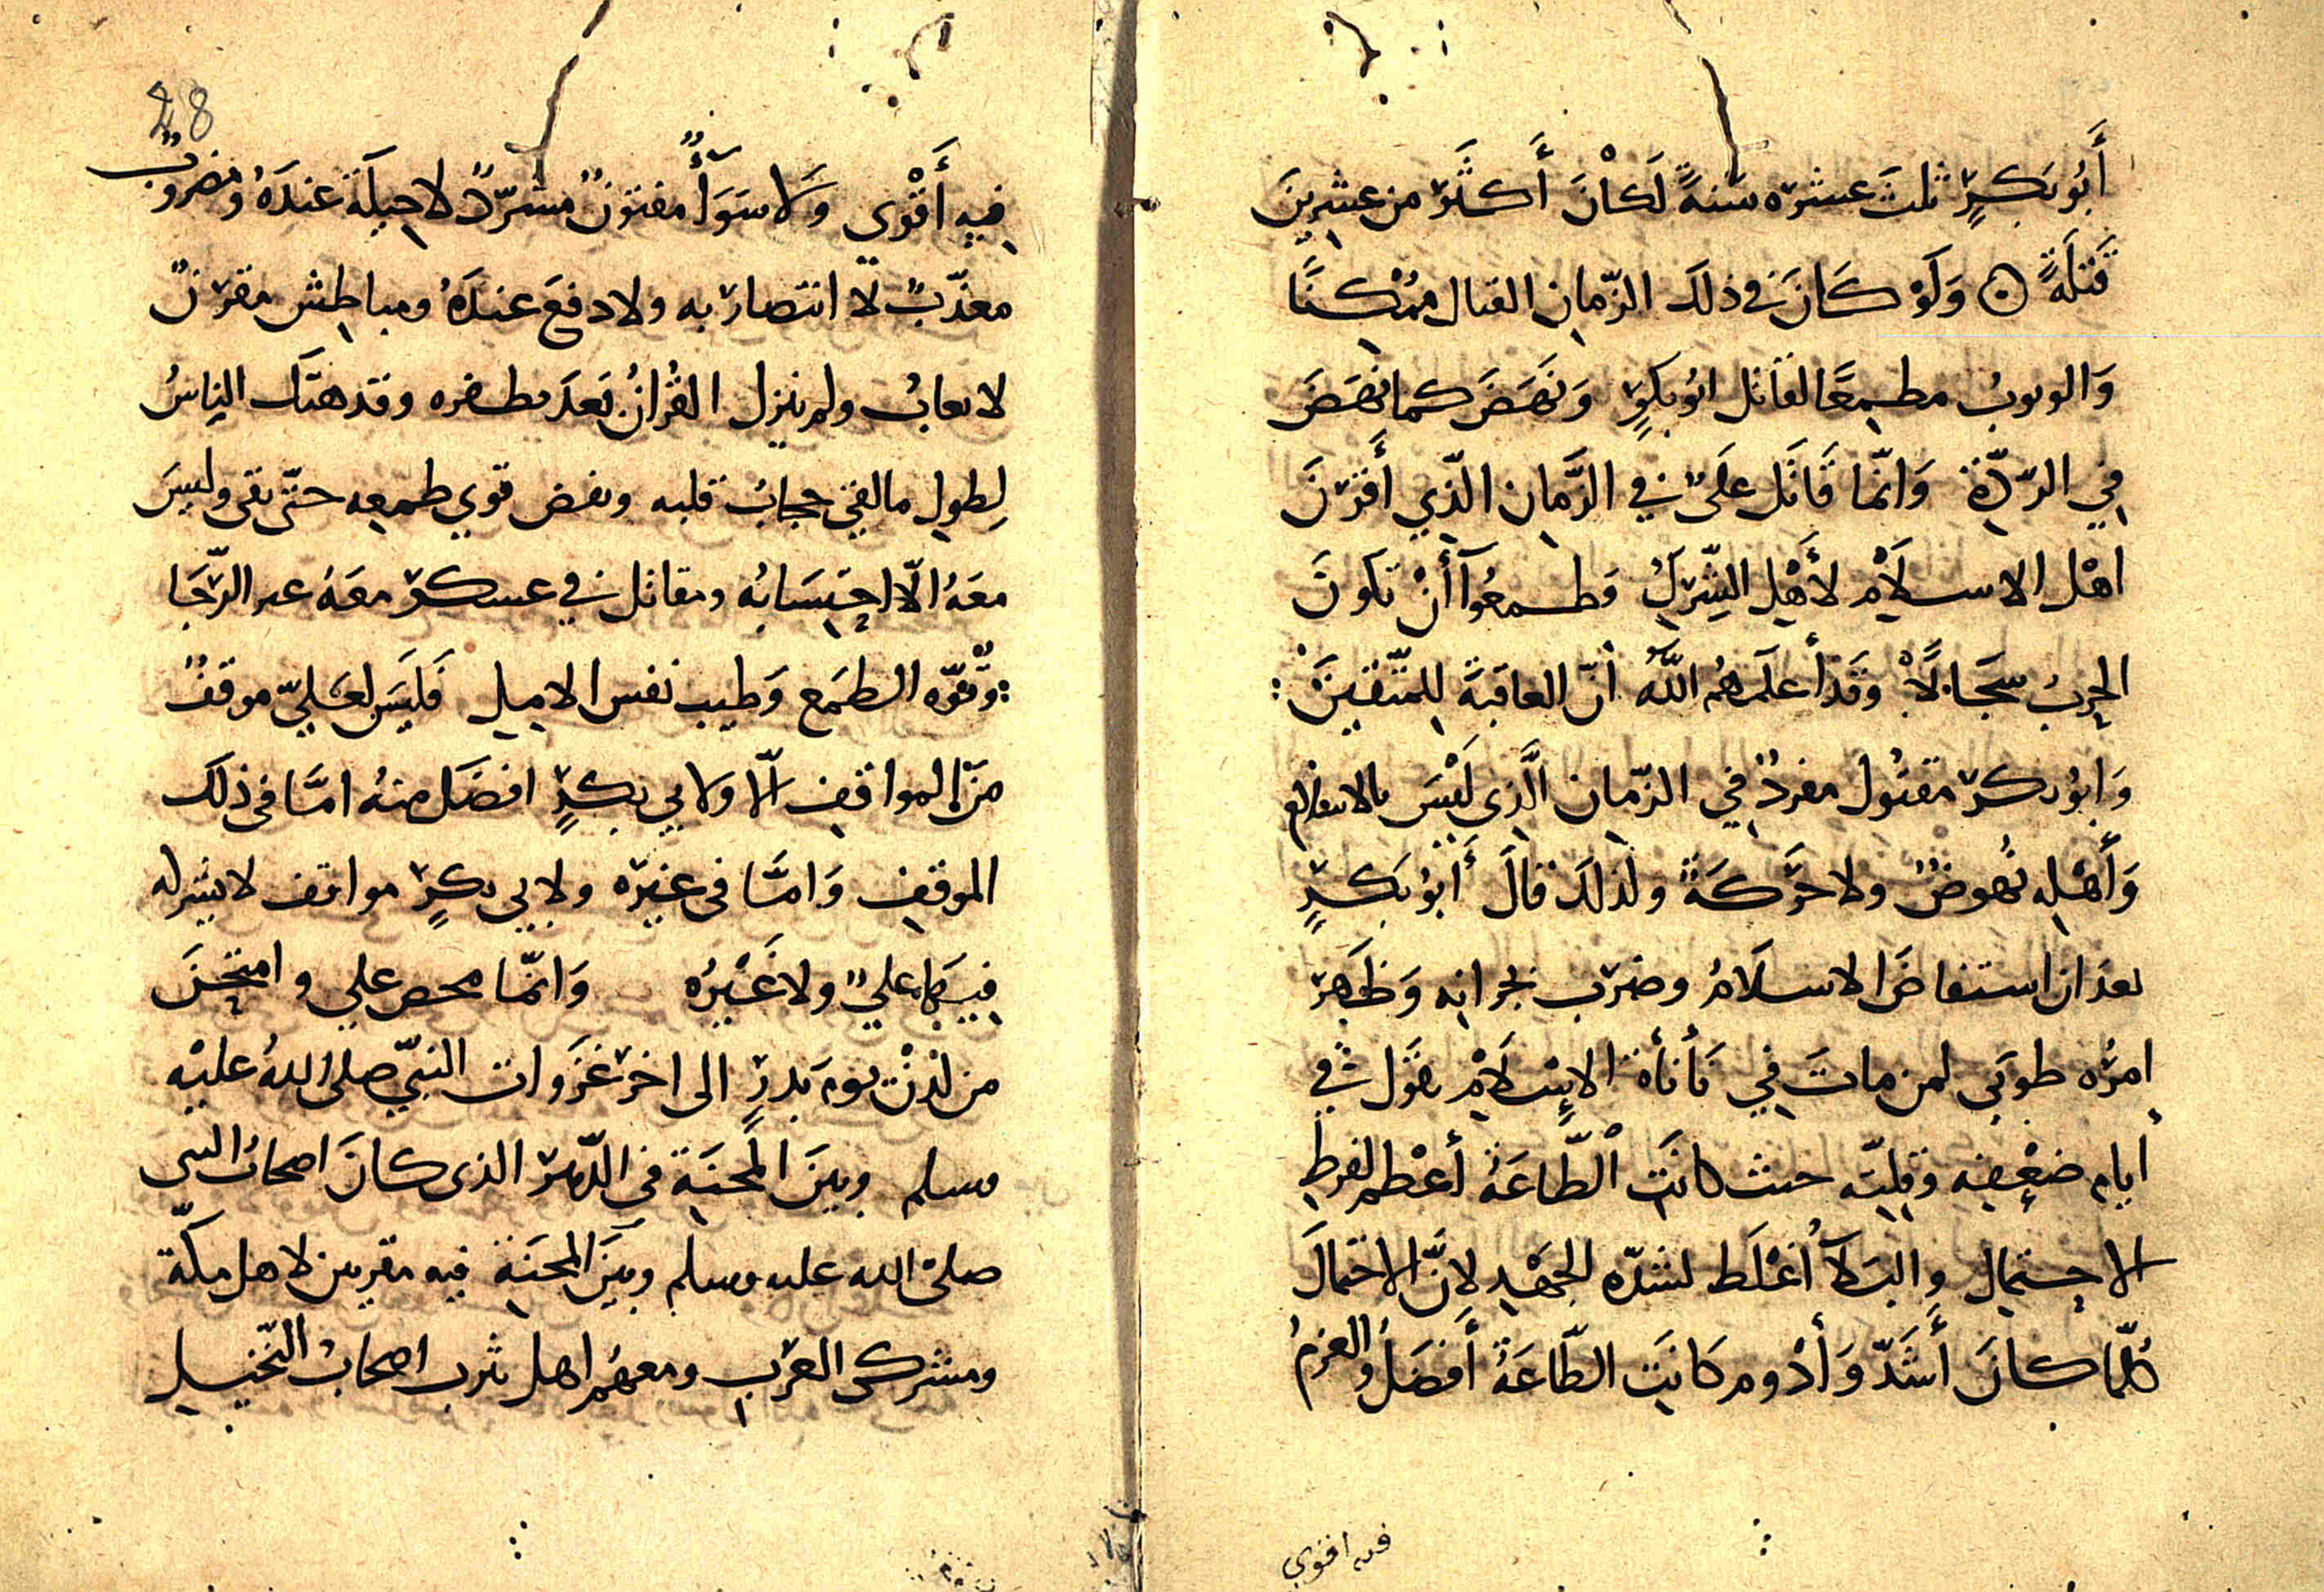 أَبُو بَكرٍ ثلثَ عشره سَنةً لَكانَ أَكثَر من عشرينَ
قَتلَةً ۞ وَلَوْ كَانَ في ذلكَ الزّمانِ القتال مُمْكِنًا
وَالوثوبُ مطمِعًا لقاتل ابُو بكرٍ وَنَهَضَ كما نَهَضَ
فِي الرِّدّة وَانّما قَاتَل عَلَيٌ في الزَّمانِ الَّذِي أَقرَنَ
اهْل الاسلَامِ لأَهْلِ الشِّركِ وَطمعُوا أَنْ تَكونَ
الحِربُ سِجَالًا وَقَد أَعلَمَهُم اللَّهُ أنّ العاقبَةَ لِلمُتَّقينَ :
وَابُو بكر مقتُول مفردٌ فِي الزّمانِ الَّذِي لَيْسَ بالاسلام
وَأَهْلِهِ نُهوضٌ ولا حَرَكَةٌ ولذلكَ قالَ أَبُو بَكرٍ
بعد ان استفاضَ الاسلَامُ وضرَب بجرانِه وَظَهر
امرُه طوبَى لمن ماتَ فِي نَأنأة الإِسلَامِ يقُول في
ايام ضعْفِه وَقِلّتِه حيث كانَتِ الطّاعَةُ أَعْظم لفرطِ
الاحتِمالِ والبَلآءُ أغلَظ لشدّه الجَهْدِ لانّ الاحتمالَ
كُلَّما كانَ أَشَدّ وَأَدْوم كَانَتِ الطّاعَةُ أَفضَلُ والعزمُ
فيه اقوي
28
فِيهِ أَقْوَي وَلَا سَوَآءٌ مفتونٌ مشرّدٌ لا حِيلَةَ عندَهُ ومضروبٌ
معذّبٌ لا انتصار به ولا دفعَ عندَهُ ومباطِش مقرنٌ
لا يعابُ ولم ينزل القُرانُ بَعدَ بظفره وقد هتك الناسُ
لِطولِ ما لقيَ حجابُ قلبه ونفض قوي طمعِه حتّى بقى وليسَ
معَهُ الّا احِتِسَابُه ومقاتل في عسكر معَهُ عز الرَّجَا
وقُوّه الطمَعِ وَطيب نفس الامِل فَليَس لعَليّ موقفٌ
مِنَ المواقِفِ الّا ولابي بكرٍ افضَل منهُ امَّا فى ذلكَ
الموقِفِ وَامَّا فى غيرِه ولابي بكرٍ مواقف لا يشركه
فِيهَا عليٌ ولا غَيْرُه وَانّما محص علي وامتحِنَ
من لدُنْ يومَ بَدرٍ الى اخر غَزَوات النبيّ صلى اللهُ عليْه
وسلم وبينَ المِحنَةِ فى الدّهر الذى كانَ اصحابُ النبى
صلىْ الله عليه وسلم وبَينَ المِحنَةِ فيه مقرِنين لاهل مكّة
ومشركى العرَبِ ومعهُم اهل يثرب اصحابُ النّخيلِ